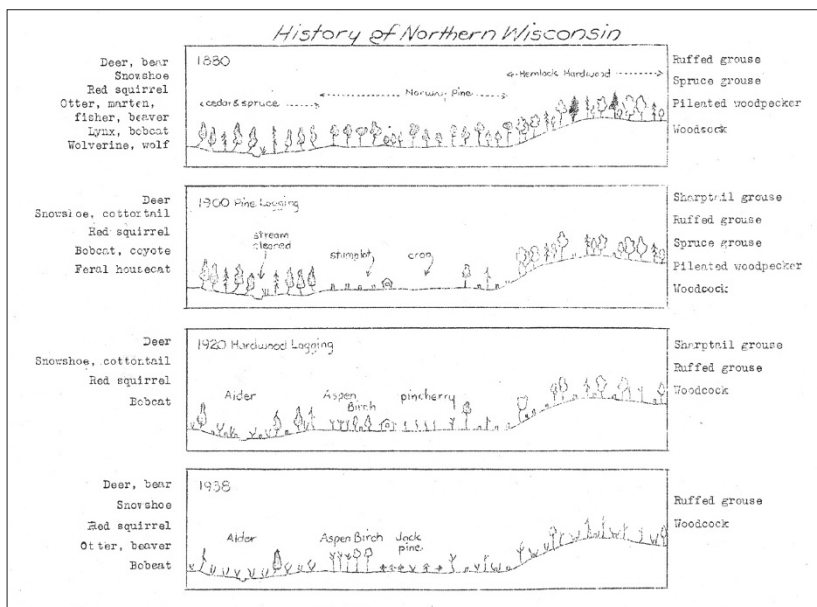 History of Northern Wisconsin
Deer, bear
Snowshoe
Red squirrel
Otter, marten,
fisher, beaver
Lynx, bobcat
Wolverine, wolf
1880
cedar & spruce
Norway Pine
Hemlock Hardwood
Ruffed grouse
Spruce grouse
Pileated woodpecker
Woodcock
Deer
Snowshoe, cottontail
Red squirrel
Bobcat, coyote
Feral housecat
1900 Pine Logging
stream
cleared
stumplot
crop
Sharptail grouse
Ruffed grouse
Spruce grouse
Pileated woodpecker
Woodcock
Deer
Snowshoe, cottontail
Red squirrel
Bobcat
1920 Hardwood Logging
Alder
Aspen
Birch
pincherry
Sharptail grouse
Ruffed grouse
Woodcock
Deer, bear
Snowshoe
Red squirrel
Otter, beaver
Bobcat
1938
Alder
Aspen Birch
Jack
pine
Ruffed grouse
Woodcock